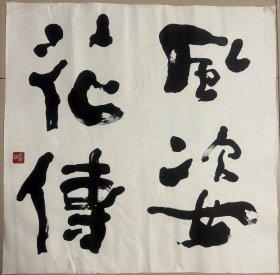 風姿
花傳